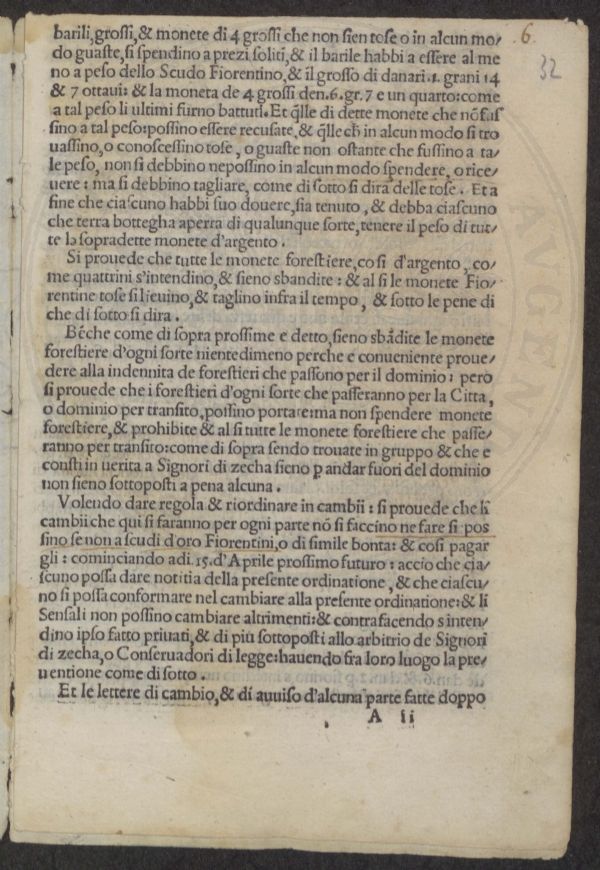 6.
32
barili, grossi, & monete di 4 grossi che non sien tose o in alcun mo/
do guaste, si spendino a prezi soliti, & il barile habbi a essere al me
no a peso dello Scudo Fiorentino, & il grosso di danari .1. grani 14
& 7 ottaui: & la moneta de 4 grossi den.6.gr.7 e un quarto: come
a tal peso li ultimi furno battuti. Et q̃lle di dette monete che nõ fus
sino a tal peso: possino essere recusate, & q̃lle ch̃ in alcun modo si tro
uassino, o conoscessino tose, o guaste non ostante che fussino a ta/
le peso, non si debbino ne possino in alcun modo spendere, o rice/
uere: ma si debbino tagliare, come di sotto si dira delle tose. Et a
fine che ciascuno habbi suo douere, sia tenuto, & debba ciascuno
che terra bottegha aperta di qualunque sorte, tenere il peso di tut/
te le sopradette monete d'argento.
Si prouede che tutte le monete forestiere, cosi d'argento, co/
me quattrini s'intendino, & sieno sbandite: & al si le monete Fio/
rentine tose si lieuino, & taglino infra il tempo, & sotto le pene di
che di sotto si dira.
Bẽche come di sopra prossime e detto, sieno sbãdite le monete
forestiere d'ogni sorte nientedimeno perche e conueniente proue/
dere alla indennita de forestieri che passono per il dominio: pero
si prouede che i forestieri d'ogni sorte che passeranno per la Citta,
o dominio per transito, possino portare: ma non spendere monete
forestiere, & prohibite & al si tutte le monete forestiere che passe/
ranno per transito: come di sopra sendo trouate in gruppo & che e
consti in uerita a Signori di zecha sieno ꝑ andar fuori del dominio
non sieno sottoposti a pena alcuna.
Volendo dare regola & riordinare in cambii: si prouede che li
cambii che qui si faranno per ogni parte nõ si faccino ne fare si pos
sino se non a scudi d'oro Fiorentini, o di simile bonta: & cosi pagar
gli: cominciando adi .15. d'Aprile prossimo futuro: accio che cia/
scuno possa dare notitia della presente ordinatione, & che ciascu/
no si possa conformare nel cambiare alla presente ordinatione: & li
Sensali non possino cambiare altrimenti: & contrafacendo s'inten/
dino ipso fatto priuati, & di più sottoposti allo arbitrio de Signori
di zecha, o Conseruadori di legge: hauendo fra loro luogo la pre/
uentione come di sotto.
Et le lettere di cambio, & di auuiso d'alcuna parte fatte doppo
A ii